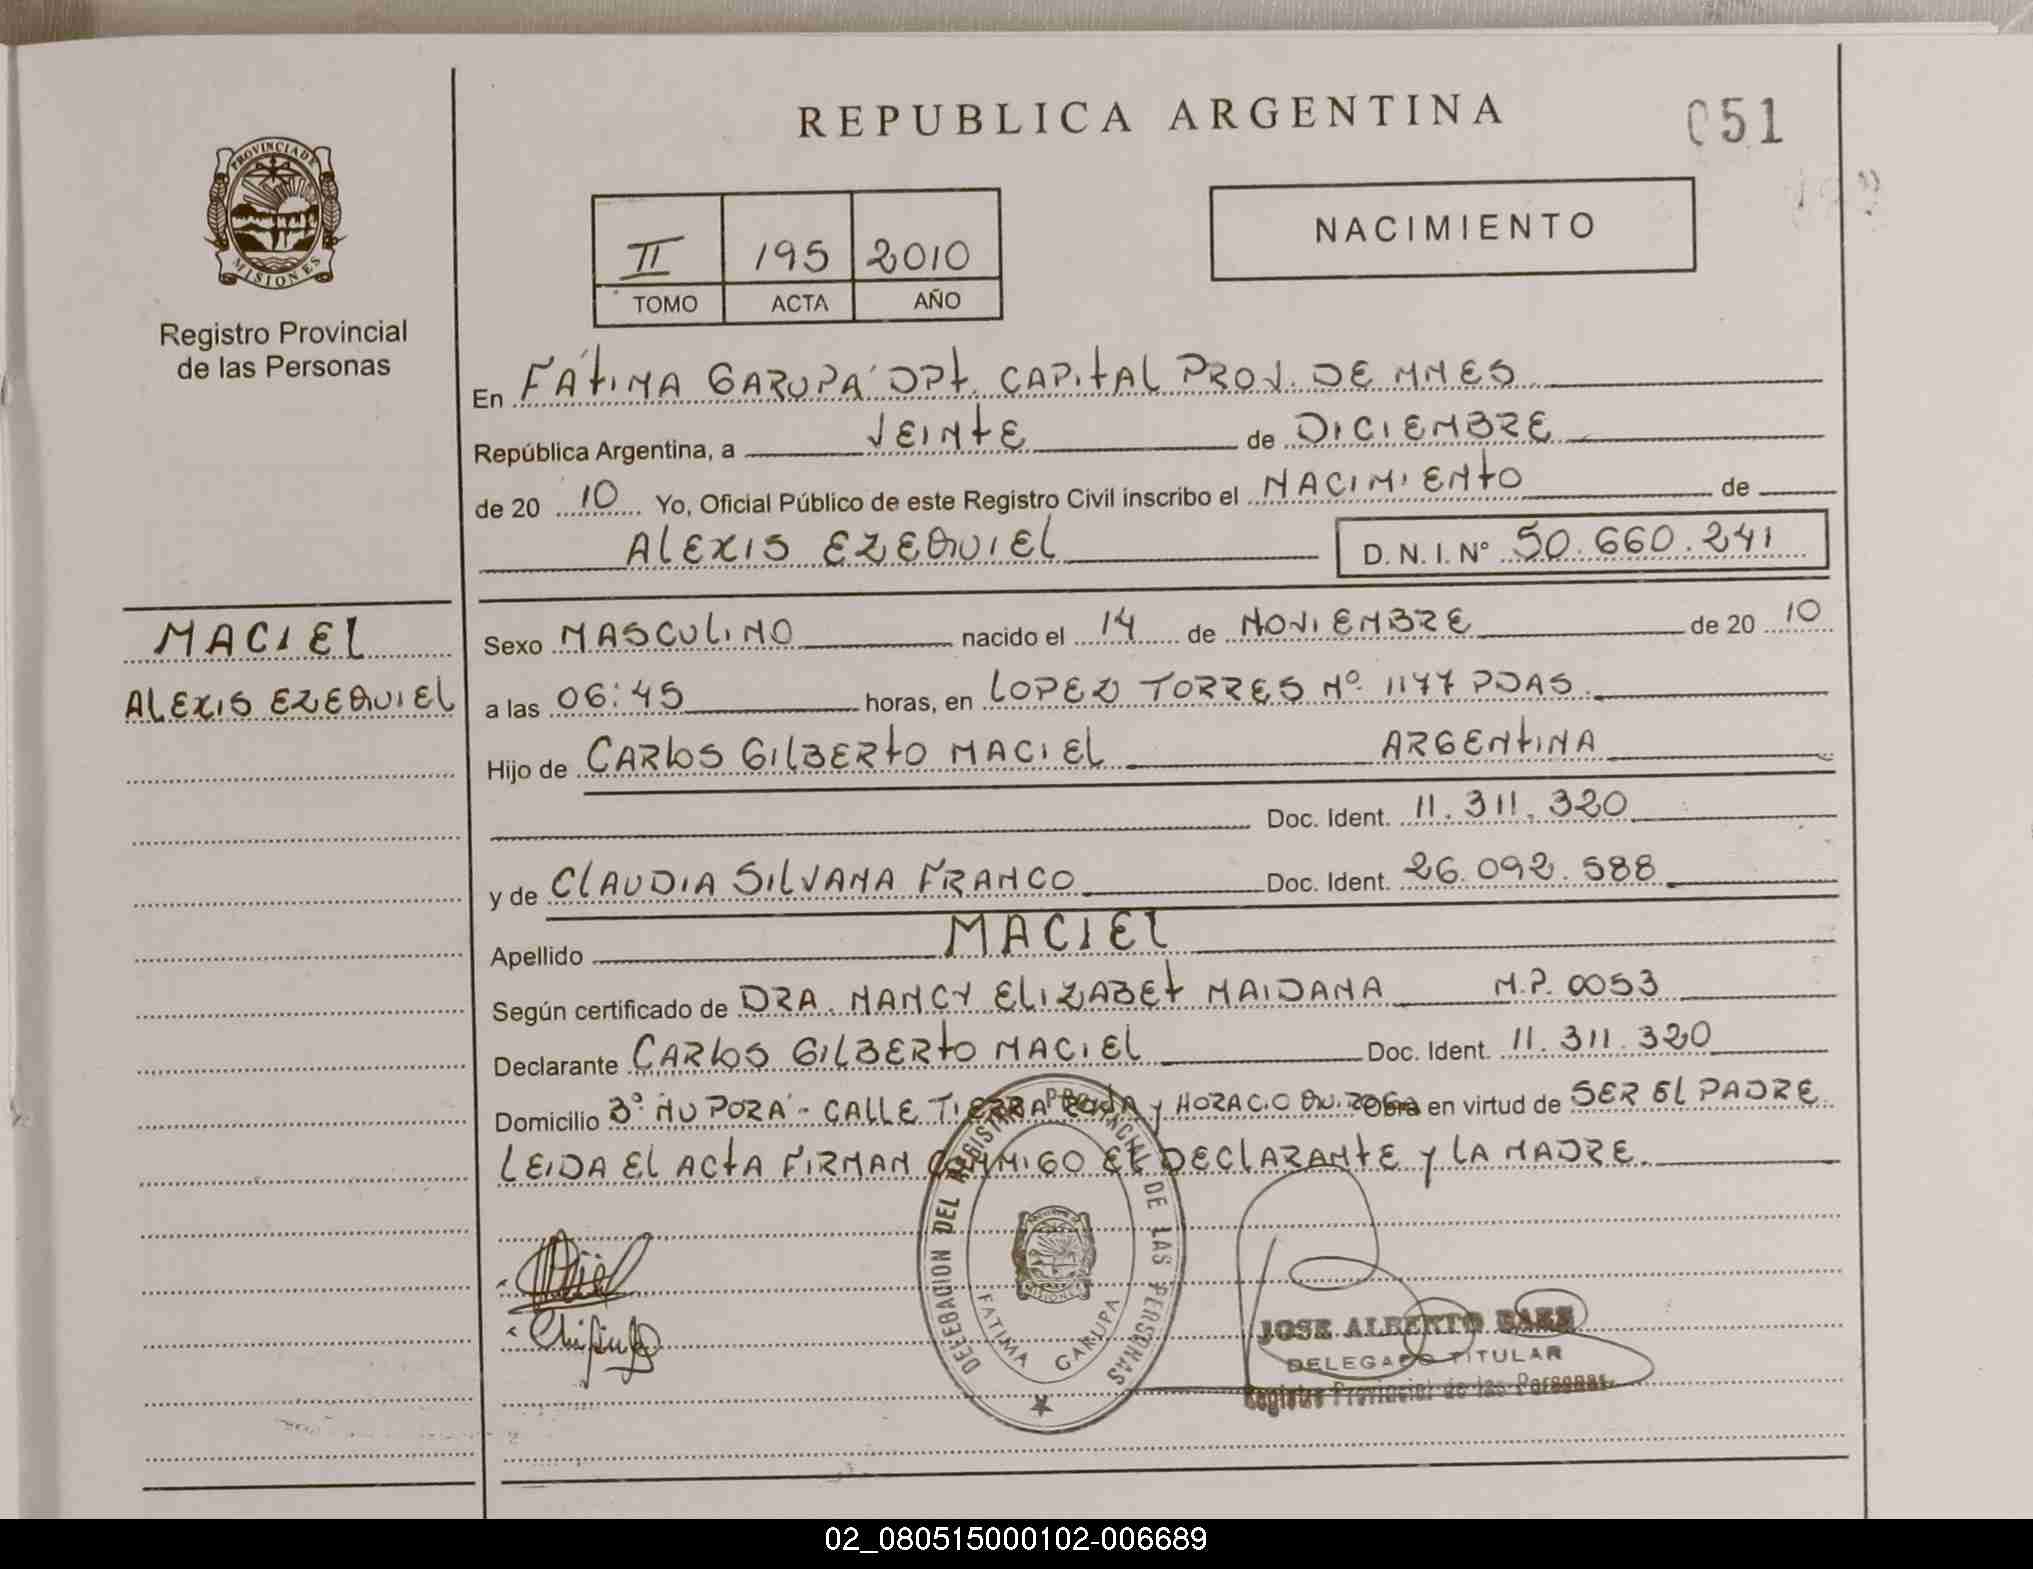 REPUBLICA ARGENTINA
051
PROVINCIA DE
MISIONES
Registro Provincial
de las Personas
II 195 2010
TOMO ACTA AÑO
NACIMIENTO
En FÁTIMA GARUPÁ DPT. CAPITAL PROV. DE MNES
República Argentina, a VEINTE de DICIEMBRE
de 20 10 Yo, Oficial Público de este Registro Civil inscribo el NACIMIENTO de
ALEXIS EZEQUIEL D. N. I. Nº 50.660.241
MACIEL
ALEXIS EZEQUIEL
Sexo MASCULINO nacido el 14 de NOVIEMBRE de 20 10
a las 06:45 horas, en LOPEZ TORRES Nº 1177 PDAS.
Hijo de CARLOS GILBERTO MACIEL ARGENTINA
Doc. Ident. 11.311.320
y de CLAUDIA SILVANA FRANCO Doc. Ident. 26.092.588
Apellido MACIEL
Según certificado de DRA. NANCY ELIZABET MAIDANA M.P. 0053
Declarante CARLOS GILBERTO MACIEL Doc. Ident. 11.311.320
Domicilio Bº ÑU PORÁ - CALLE TIERRA ROJA y HORACIO QUIROGA en virtud de SER EL PADRE.
LEIDA EL ACTA FIRMAN CONMIGO EL DECLARANTE y LA MADRE.
DELEGACION DEL REGISTRO PROVINCIAL DE LAS PERSONAS
MISIONES
FATIMA GARUPA
JOSE ALBERTO BAEZ
DELEGADO TITULAR
Registro Provincial de las Personas
02_080515000102-006689